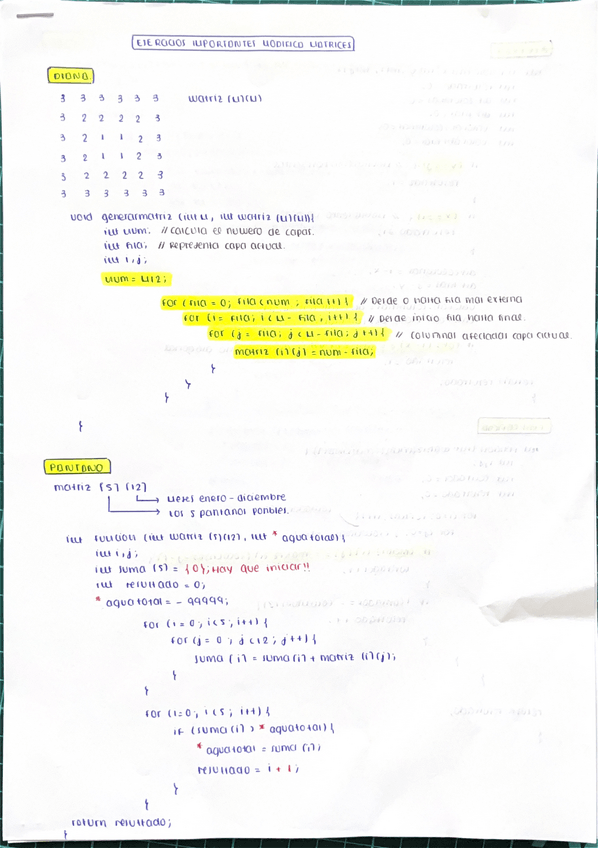 EJERCICIOS IMPORTANTES MODIFICO MATRICES
DIANA
3 3 3 3 3 3 matriz [n][n]
3 2 2 2 2 3
3 2 1 1 2 3
3 2 1 1 2 3
3 2 2 2 2 3
3 3 3 3 3 3
void generarmatriz (int n, int matriz [n][n]){
int num; // calcula el numero de capas.
int fila; // Representa capa actual.
int i,j;
num = n/2;
for (fila = 0; fila < num ; fila ++) { // Desde 0 hasta fila mas externa
for (i = fila; i < n - fila, i++) { // Desde inicio fila hasta final.
for (j = fila; j < n - fila; j++) { // columnas afectadas capa actual.
matriz [i][j] = num - fila;
}
}
}
}
PANTANO
matriz [5] [12]
meses enero - diciembre
los 5 pantanos posibles.
int funcion (int matriz [5][12], int * aguatotal) {
int i,j;
int suma [5] = {0}; Hay que iniciar!!
int resultado = 0;
* aguatotal = - 99999;
for (i = 0; i<5; i++) {
for (j = 0; j<12; j++) {
suma [i] = suma [i] + matriz [i][j];
}
}
for (i=0; i<5; i++) {
if (suma [i] > * aguatotal) {
* aguatotal = suma [i];
resultado = i + 1;
}
}
return resultado;
}